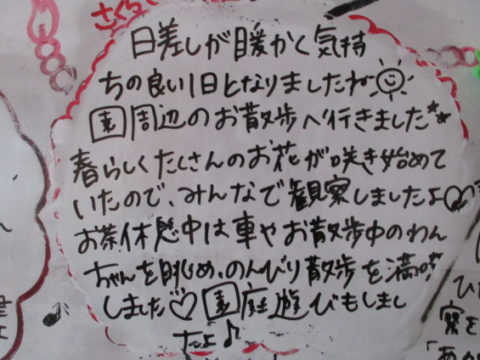 さくら
日差しが暖かく気持
ちの良い1日となりましたね☀
園周辺のお散歩へ行きました★★
春らしくたくさんのお花が咲き始めて
いたので、みんなで観察しましたよ♡♡
お茶休憩中は車やお散歩中のわん
ちゃんを眺め、のんびり散歩を満喫
しました♡園庭遊びもしまし
たよ♪